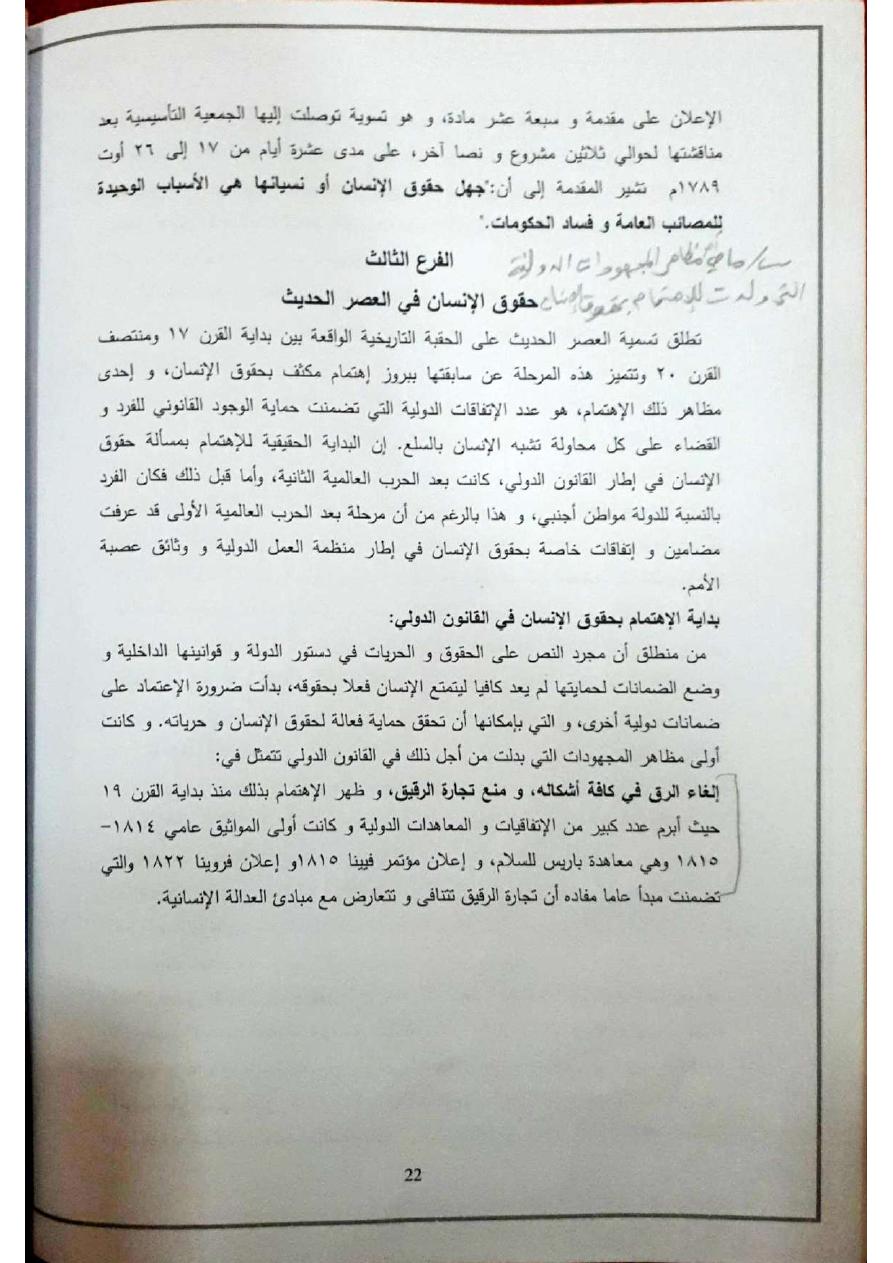 الإعلان على مقدمة و سبعة عشر مادة، و هو تسوية توصلت إليها الجمعية التأسيسية بعد
مناقشتها لحوالي ثلاثين مشروع و نصا آخر، على مدى عشرة أيام من ١٧ إلى ٢٦ أوت
١٧٨٩م تشير المقدمة إلى أن:"جهل حقوق الإنسان أو نسيانها هي الأسباب الوحيدة
للمصائب العامة و فساد الحكومات."
س/ ماهي مظاهر المجهودات الدولية
الفرع الثالث
التي ولدت للإهتمام بحقوق الإنسان
حقوق الإنسان في العصر الحديث
تطلق تسمية العصر الحديث على الحقبة التاريخية الواقعة بين بداية القرن ١٧ ومنتصف
القرن ٢٠ وتتميز هذه المرحلة عن سابقتها ببروز إهتمام مكثف بحقوق الإنسان، و إحدى
مظاهر ذلك الإهتمام، هو عدد الإتفاقات الدولية التي تضمنت حماية الوجود القانوني للفرد و
القضاء على كل محاولة تشبه الإنسان بالسلع. إن البداية الحقيقية للإهتمام بمسألة حقوق
الإنسان في إطار القانون الدولي، كانت بعد الحرب العالمية الثانية، وأما قبل ذلك فكان الفرد
بالنسبة للدولة مواطن أجنبي، و هذا بالرغم من أن مرحلة بعد الحرب العالمية الأولى قد عرفت
مضامين و إتفاقات خاصة بحقوق الإنسان في إطار منظمة العمل الدولية و وثائق عصبة
الأمم.
بداية الإهتمام بحقوق الإنسان في القانون الدولي:
من منطلق أن مجرد النص على الحقوق و الحريات في دستور الدولة و قوانينها الداخلية و
وضع الضمانات لحمايتها لم يعد كافيا ليتمتع الإنسان فعلا بحقوقه، بدأت ضرورة الإعتماد على
ضمانات دولية أخرى، و التي بإمكانها أن تحقق حماية فعالة لحقوق الإنسان و حرياته. و كانت
أولى مظاهر المجهودات التي بدلت من أجل ذلك في القانون الدولي تتمثل في:
إلغاء الرق في كافة أشكاله، و منع تجارة الرقيق، و ظهر الإهتمام بذلك منذ بداية القرن ١٩
حيث أبرم عدد كبير من الإتفاقيات و المعاهدات الدولية و كانت أولى المواثيق عامي ١٨١٤-
١٨١٥ وهي معاهدة باريس للسلام، و إعلان مؤتمر فيينا ١٨١٥و إعلان فروينا ١٨٢٢ والتي
تضمنت مبدأ عاما مفاده أن تجارة الرقيق تتنافى و تتعارض مع مبادئ العدالة الإنسانية.
22